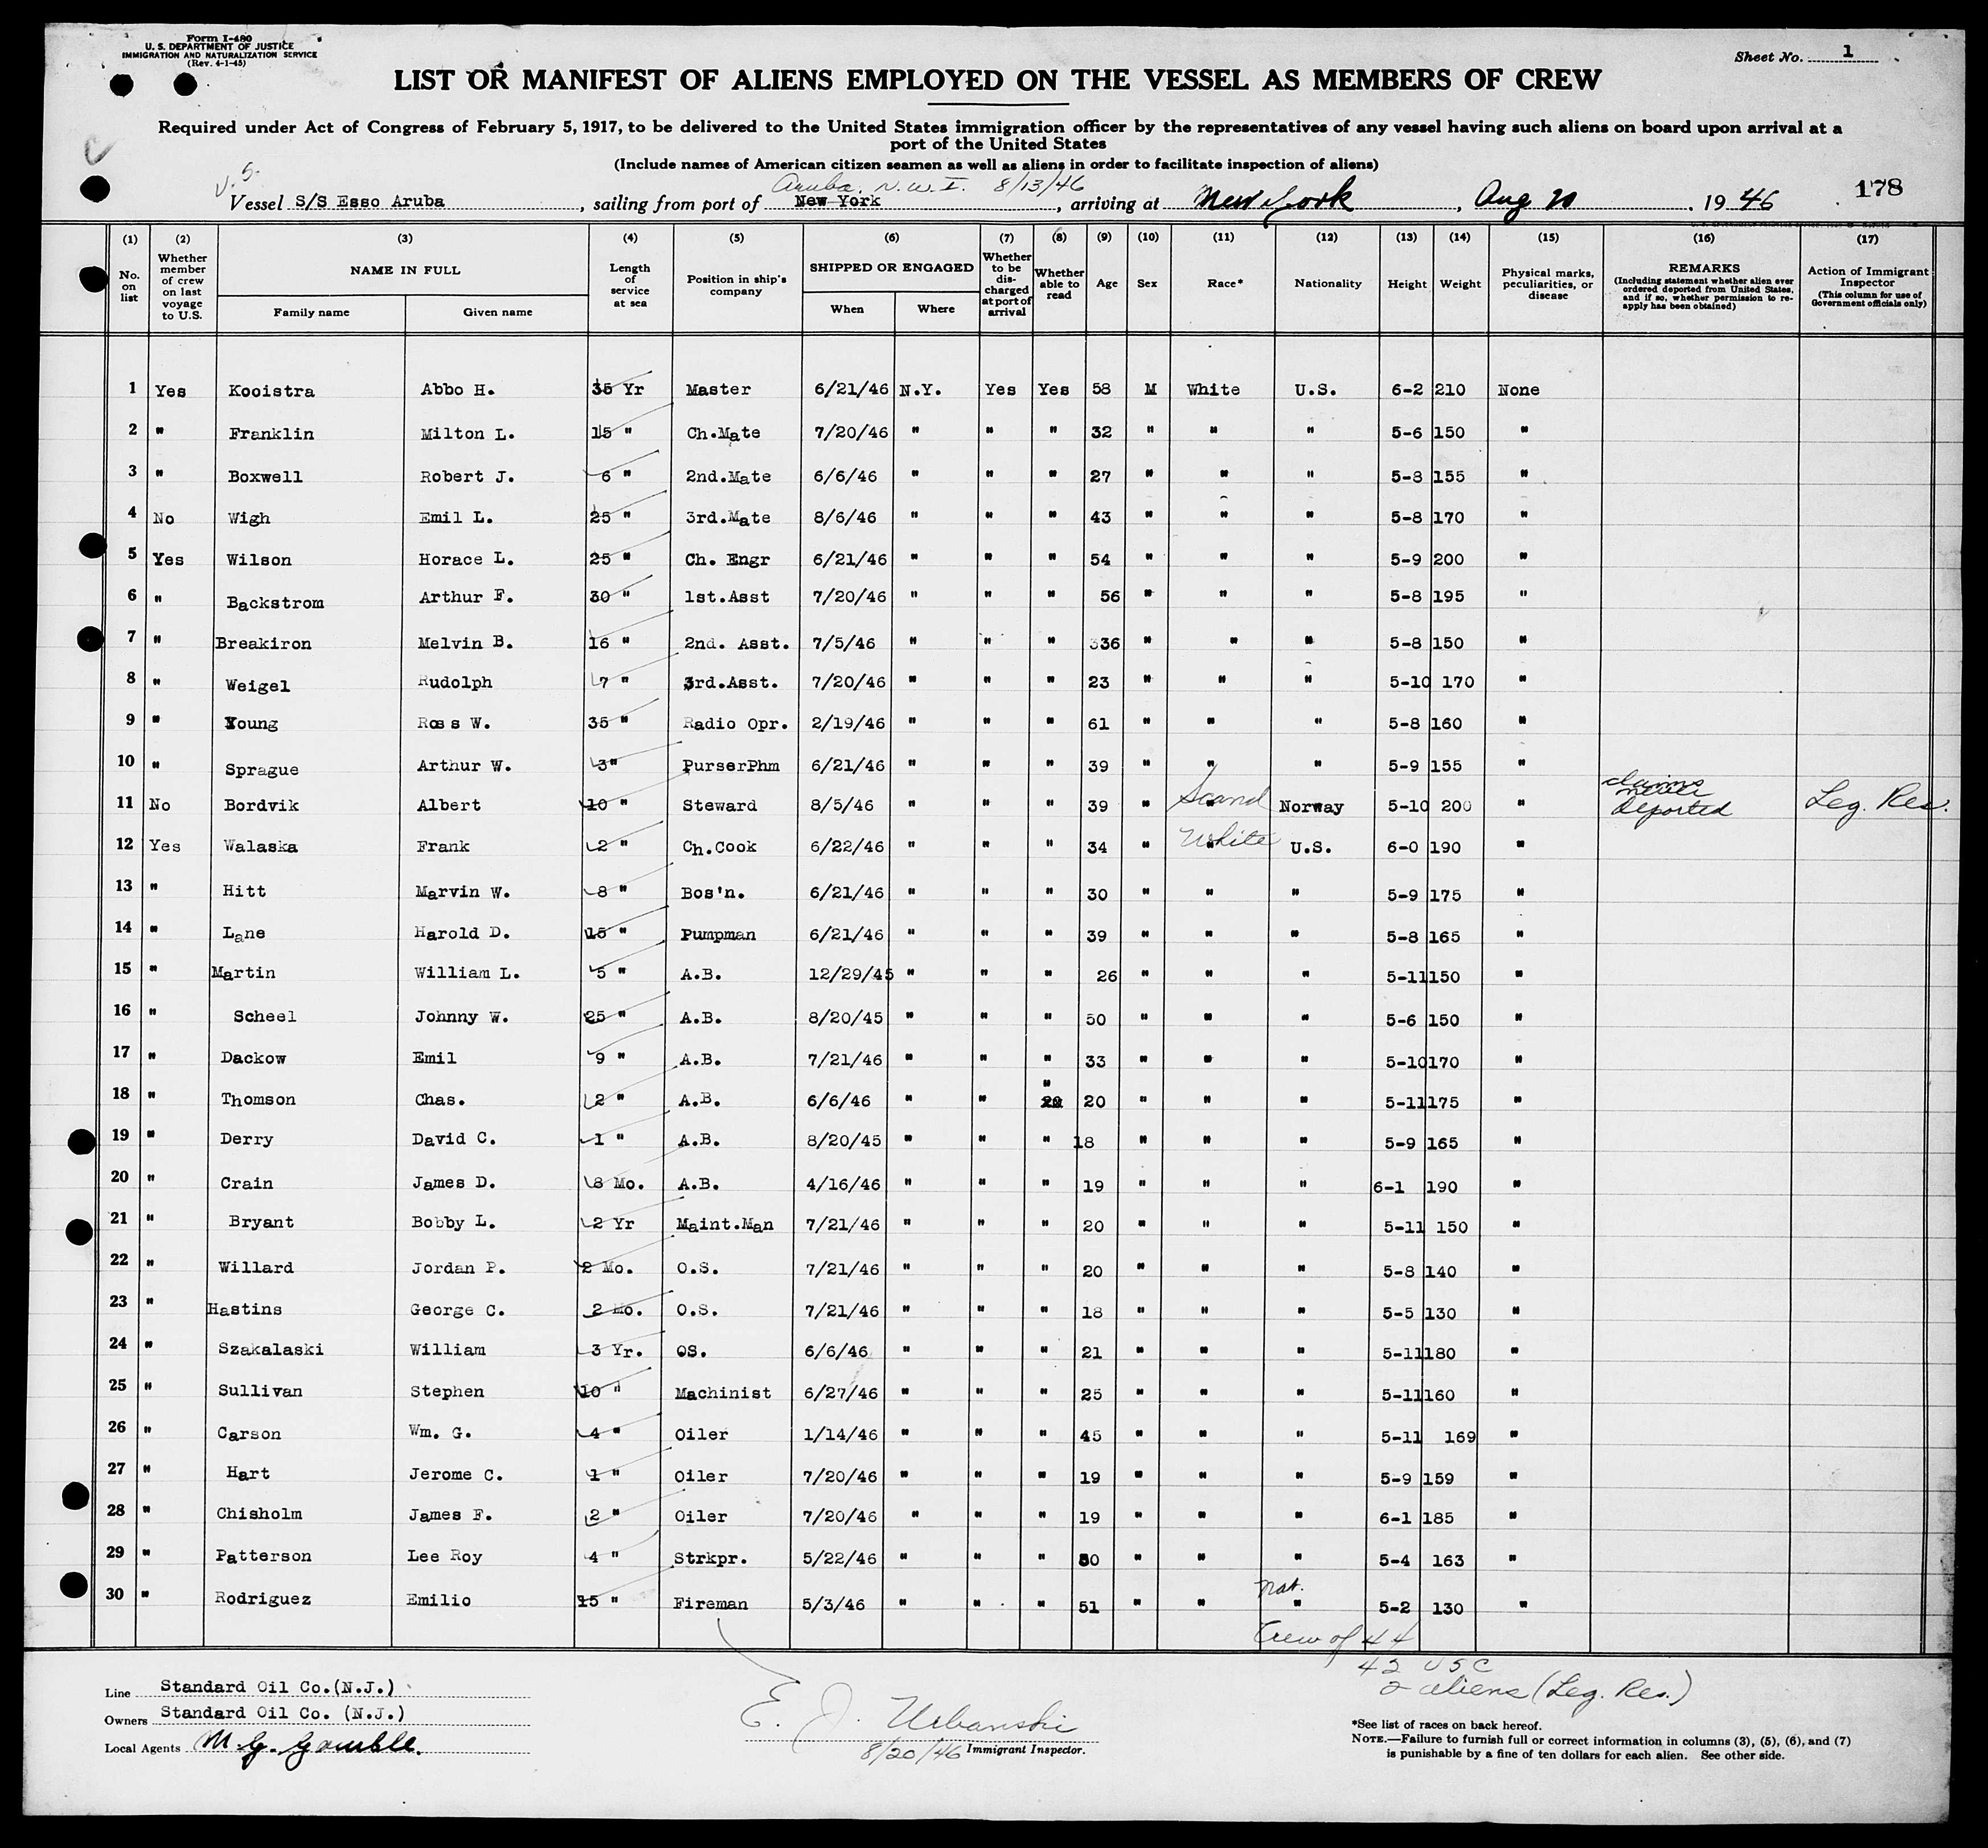 Form I-480
U. S. DEPARTMENT OF JUSTICE
IMMIGRATION AND NATURALIZATION SERVICE
(Rev. 4-1-45)
Sheet No. 1
LIST OR MANIFEST OF ALIENS EMPLOYED ON THE VESSEL AS MEMBERS OF CREW
Required under Act of Congress of February 5, 1917, to be delivered to the United States immigration officer by the representatives of any vessel having such aliens on board upon arrival at a
port of the United States
(Include names of American citizen seamen as well as aliens in order to facilitate inspection of aliens)
U.S. Aruba, N.W.I. 8/13/46
Vessel S/S Esso Aruba, sailing from port of New York, arriving at New York, Aug 20, 1946 178
(1) (2) (3) (4) (5) (6) (7) (8) (9) (10) (11) (12) (13) (14) (15) (16) (17)
No. on list Whether member of crew on last voyage to U.S. NAME IN FULL Family name Given name Length of service at sea Position in ship's company SHIPPED OR ENGAGED When Where Whether to be discharged at port of arrival Whether able to read Age Sex Race* Nationality Height Weight Physical marks, peculiarities, or disease REMARKS (Including statement whether alien ever ordered deported from United States, and if so, whether permission to reapply has been obtained) Action of Immigrant Inspector (This column for use of Government officials only)
1 Yes Kooistra Abbo H. 35 Yr Master 6/21/46 N.Y. Yes Yes 58 M White U.S. 6-2 210 None
2 " Franklin Milton L. 15 " Ch.Mate 7/20/46 " " " 32 " " " 5-6 150 "
3 " Boxwell Robert J. 6 " 2nd.Mate 6/6/46 " " " 27 " " " 5-8 155 "
4 No Wigh Emil L. 25 " 3rd.Mate 8/6/46 " " " 43 " " " 5-8 170 "
5 Yes Wilson Horace L. 25 " Ch. Engr 6/21/46 " " " 54 " " " 5-9 200 "
6 " Backstrom Arthur F. 30 " 1st.Asst 7/20/46 " " " 56 " " " 5-8 195 "
7 " Breakiron Melvin B. 16 " 2nd. Asst. 7/5/46 " " " 336 " " " 5-8 150 "
8 " Weigel Rudolph 7 " 3rd.Asst. 7/20/46 " " " 23 " " " 5-10 170 "
9 " Young Ross W. 35 " Radio Opr. 2/19/46 " " " 61 " " " 5-8 160 "
10 " Sprague Arthur W. 3" PurserPhm 6/21/46 " " " 39 " " " 5-9 155 "
11 No Bordvik Albert 10 " Steward 8/5/46 " " " 39 " " Scand Norway 5-10 200 " claims never deported Leg. Res.
12 Yes Walaska Frank 2 " Ch.Cook 6/22/46 " " " 34 " " White U.S. 6-0 190 "
13 " Hitt Marvin W. 8 " Bos'n. 6/21/46 " " " 30 " " " 5-9 175 "
14 " Lane Harold D. 15 " Pumpman 6/21/46 " " " 39 " " " 5-8 165 "
15 " Martin William L. 5 " A.B. 12/29/45 " " " 26 " " " 5-11 150 "
16 " Scheel Johnny W. 25 " A.B. 8/20/45 " " " 50 " " " 5-6 150 "
17 " Dackow Emil 9 " A.B. 7/21/46 " " " 33 " " " 5-10 170 "
18 " Thomson Chas. 2 " A.B. 6/6/46 " " " 20 20 " " " 5-11 175 "
19 " Derry David C. 1 " A.B. 8/20/45 " " " 18 " " " 5-9 165 "
20 " Crain James D. 8 Mo. A.B. 4/16/46 " " " 19 " " " 6-1 190 "
21 " Bryant Bobby L. 2 Yr Maint.Man 7/21/46 " " " 20 " " " 5-11 150 "
22 " Willard Jordan P. 2 Mo. O.S. 7/21/46 " " " 20 " " " 5-8 140 "
23 " Hastins George C. 2 Mo. O.S. 7/21/46 " " " 18 " " " 5-5 130 "
24 " Szakalaski William 3 Yr. OS. 6/6/46 " " " 21 " " " 5-11 180 "
25 " Sullivan Stephen 10 " Machinist 6/27/46 " " " 25 " " " 5-11 160 "
26 " Carson Wm. G. 4 " Oiler 1/14/46 " " " 45 " " " 5-11 169 "
27 " Hart Jerome C. 1 " Oiler 7/20/46 " " " 19 " " " 5-9 159 "
28 " Chisholm James F. 2 " Oiler 7/20/46 " " " 19 " " " 6-1 185 "
29 " Patterson Lee Roy 4 " Strkpr. 5/22/46 " " " 30 " " " 5-4 163 "
30 " Rodriguez Emilio 15 " Fireman 5/3/46 " " " 51 " " Nat. " 5-2 130 "
Crew of 44
42 USC
2 aliens (Leg. Res.)
Line Standard Oil Co.(N.J.)
Owners Standard Oil Co. (N.J.)
Local Agents M. G. Gamble.
E. J. Urbanski
8/20/46 Immigrant Inspector.
*See list of races on back hereof.
NOTE.—Failure to furnish full or correct information in columns (3), (5), (6), and (7)
is punishable by a fine of ten dollars for each alien. See other side.